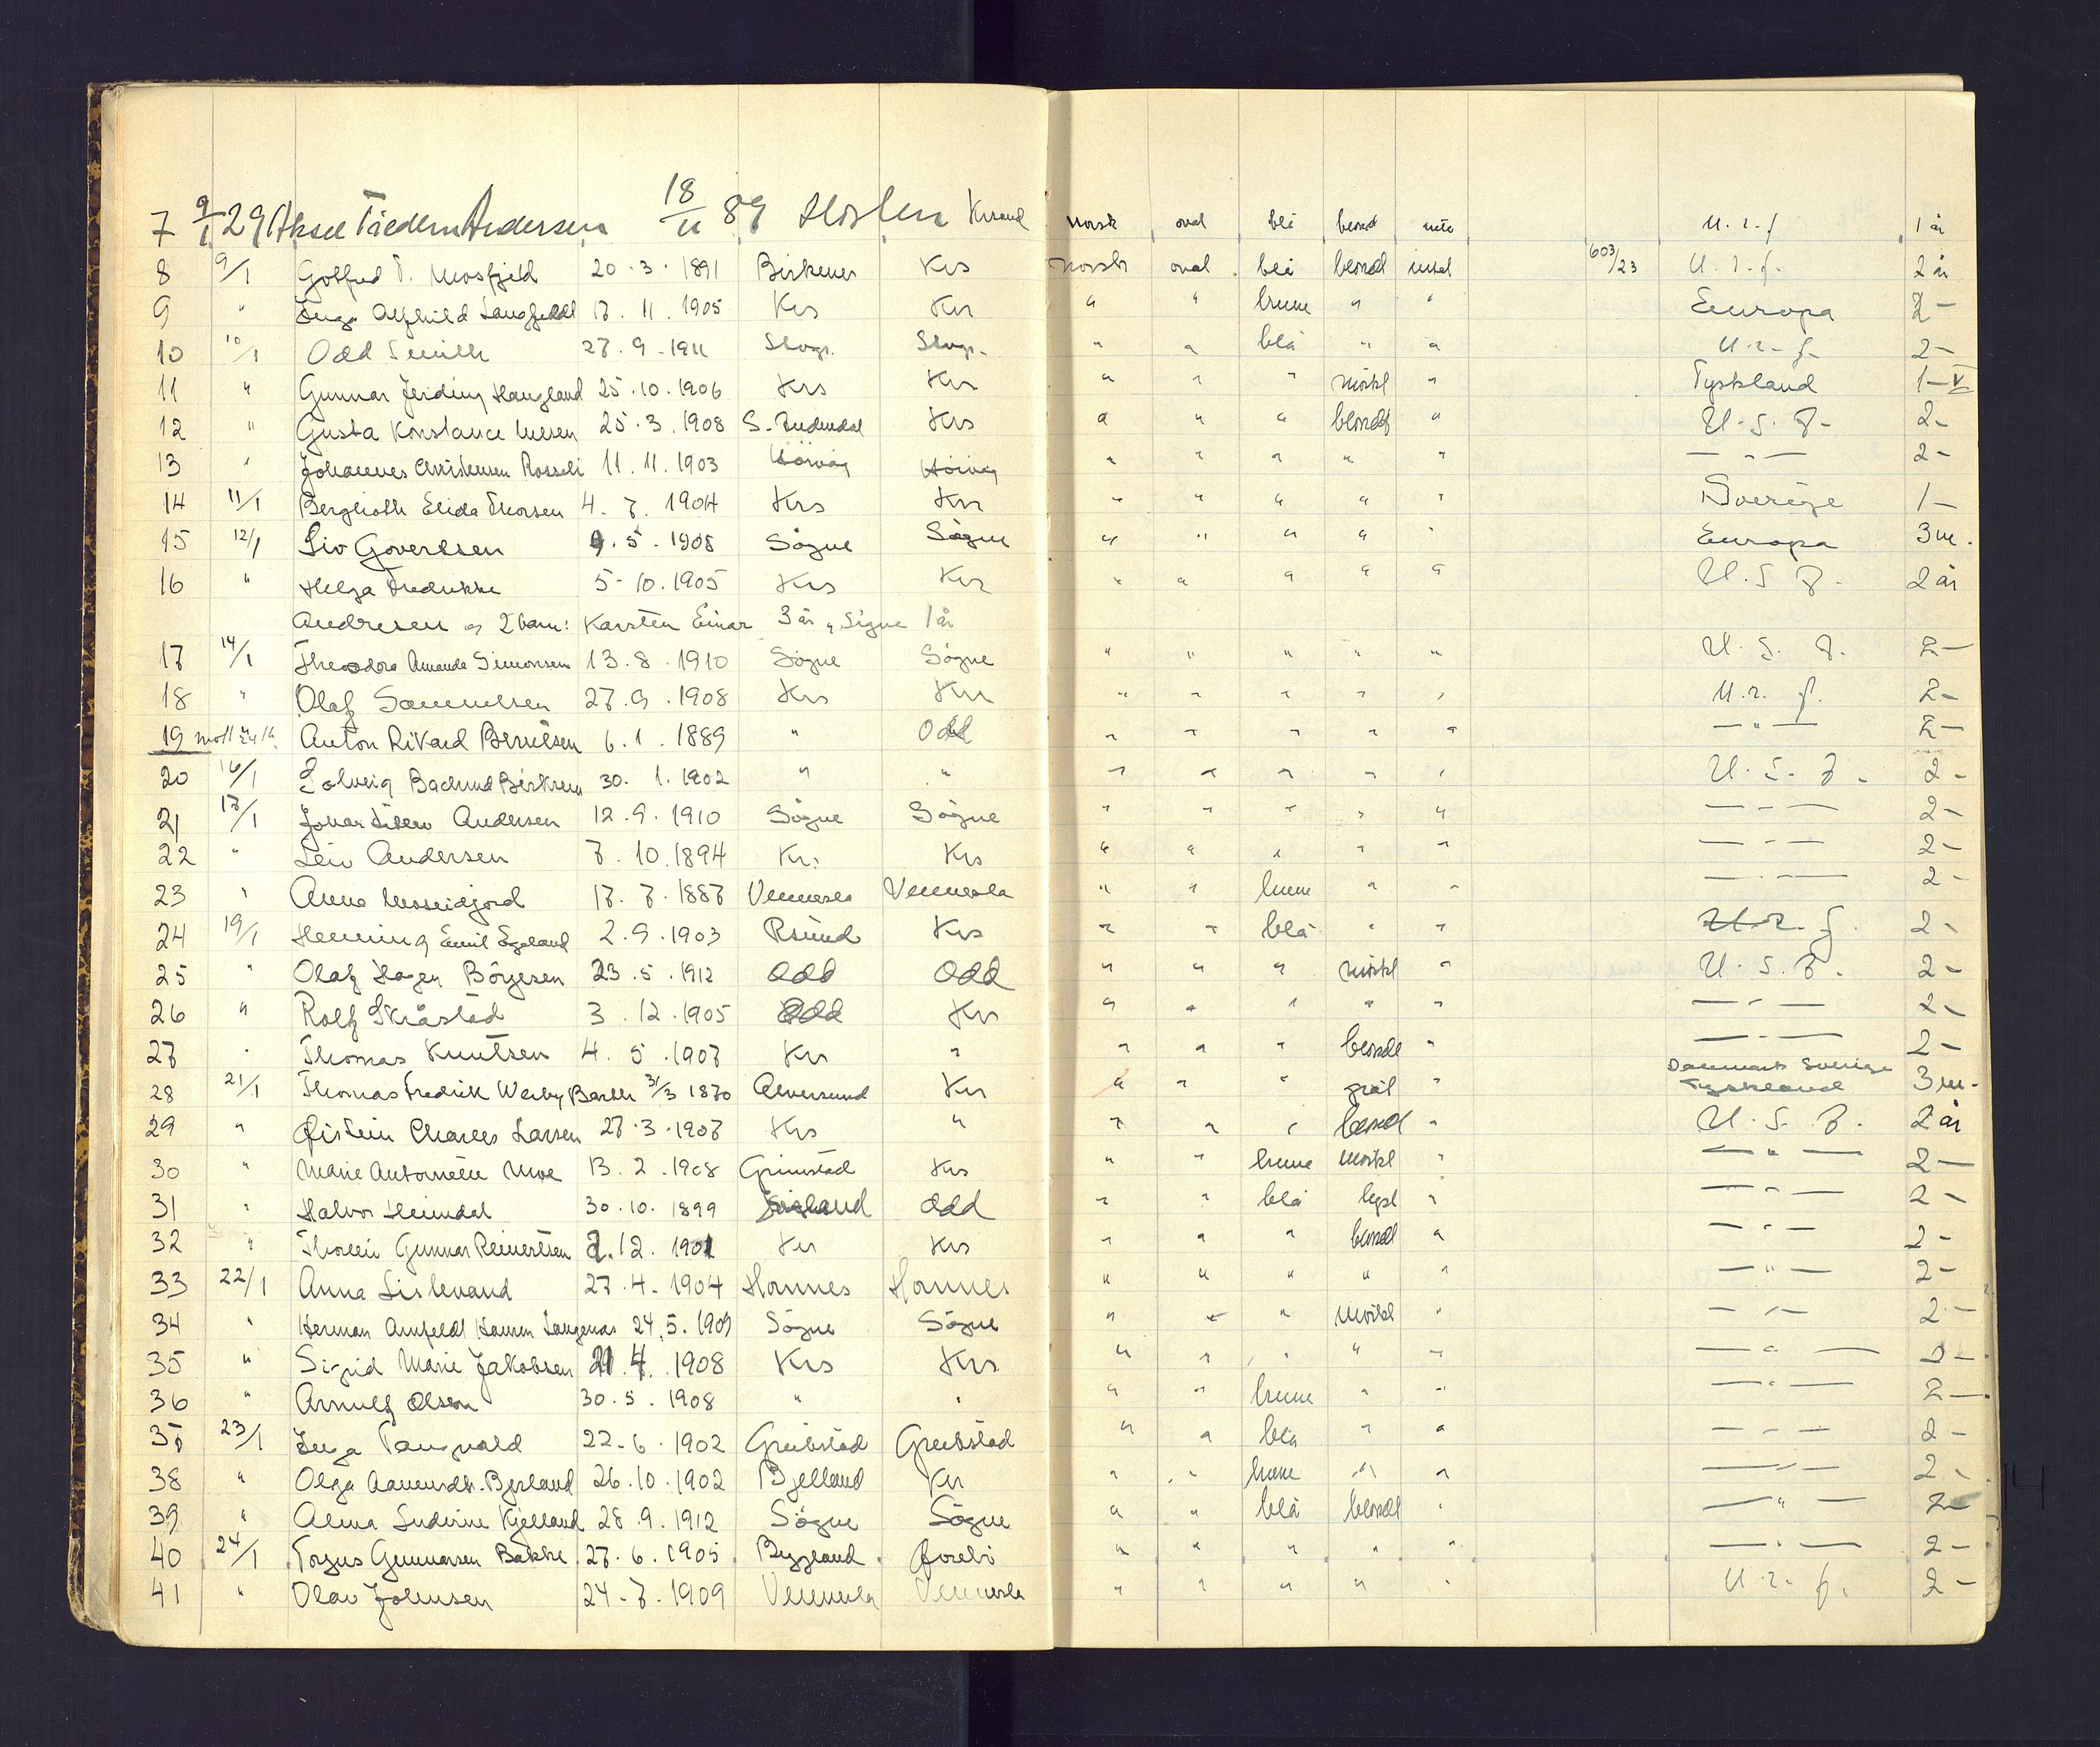 7 9/1 29 Aksel Andersen 18/11 89 Krsand norsk oval blå blond U.r.f 1 år
8 9/1 20.3.1891 Birkenes Krs norsk oval blå blondt 603/23 U.r.f. 2 år
9 " Inga Alfhild Langfeldt 17.11.1905 Krs Krs " " brune " " Europa 2 -
10 10/1 Odd Smith 27.9.1911 " " blå " " U.r.f. 2 -
11 " Gunnar Haugland 25.10.1906 Krs Krs " " " mörkt " Tyskland 1 -
12 " Gusta Konstance Iversen 25.3.1908 S. Audnedal Krs " " " blondt " U.S.A. 2 -
13 " Johannes Christensen Rosseli 11.11.1903 Hövåg Hövåg " " " " " — " — 2 -
14 11/1 Berglioth Elida Thorsen 4.7.1904 Krs Krs " " " " " Sverige 1 -
15 12/1 Liv Govertsen 9.5.1908 Søgne Søgne " " " " " Europa 3 m.
16 " Helga Fredrikke 5-10.1905 Krs Krs " " " " " U.S.A. 2 år
Andresen og 2 barn: Karsten Einar 3 år, Signe 1 år
17 14/1 Theodora Amanda Simonsen 13.8.1910 Søgne Søgne " " " " " U.S.A. 2 -
18 " Olaf Samuelsen 27.9.1908 Krs Krs " " " " " U.r.f. 2 -
19 Anton Rikard Berntsen 6.1.1889 " Odd " " " " " — " — 2 -
20 16/1 Solveig 30.1.1902 " " " " " " " U.S.A. 2 -
21 17/1 Andersen 12.9.1910 Søgne Søgne " " " " " — " — 2 -
22 " Leiv Andersen 7.10.1894 Kr. Krs " " " " " — " — 2 -
23 " Anna Moseidjord 17.7.1887 Vennesla Vennesla " " brune " " — " — 2 -
24 19/1 Henning Emil Egeland 2.9.1903 Krs " " blå " " U.r.f. 2 -
25 " Olaf Hagen Börjesen 23.5.1912 Odd Odd " " " mörkt " U.S.A. 2 -
26 " Rolf Skråstad 3.12.1905 Odd Krs " " " " " — " — 2 -
27 " Thomas Knutsen 4.5.1907 Krs " " " " blondt " — " — 2 -
28 21/1 Thomas Fredrik Werby Barth 31/3 1870 Alversund Krs " " " grått " Danmark Sverige Tyskland 3 m.
29 " Øistein Charles Larsen 27.3.1907 Krs " " " " blond " U.S.A. 2 år
30 " Marie Antoinette Moe 13.2.1908 Grimstad Krs " " brune mörkt " — " — 2 -
31 " Halvor Heimdal 30.10.1899 Odd " " blå lyst " — " — 2 -
32 " Gunnar Reinertsen 2.12.1901 Kr Krs " " " blondt " — " — 2 -
33 22/1 Anna Lislevand 27.4.1904 Hornnes Hornnes " " " " " — " — 2 -
34 " Herman Arnfeldt Hansen Langenes 24.5.1909 Søgne Søgne " " " mörkt " — " — 2 -
35 " Sigrid Marie Jakobsen 21.4.1908 Krs Krs " " " " " — " — 2 -
36 " Arnulf Olsen 30.5.1908 " " " " brune " " — " — 2 -
37 23/1 Inga Tangvald 22.6.1902 Greibstad Greibstad " " blå " " — " — 2 -
38 " Olga Bjelland 26.10.1902 Bjelland Kr " " brune " " — " — 2 -
39 " Alma Ludvine Kjelland 28.9.1912 Søgne Søgne " " blå blondt " — " — 2 -
40 24/1 Torjus Gunnarsen Bakke 27.6.1905 Bygland " " " " " — " — 2 -
41 " Olav Johnsen 24.7.1909 Vennesla Vennesla " " " " " U.r.f. 2 -